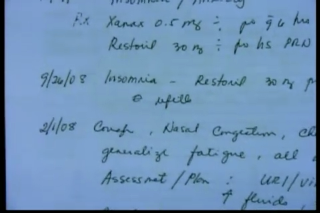 Insomnia / Anxiety
Rx Xanax 0.5 mg ÷ po q 6 hrs
Restoril 30 mg ÷ po hs PRN
9/26/08 Insomnia - Restoril 30 mg p
⊖ refills
2/1/08 Cough, Nasal Congestion, ch
generalize fatigue, all
Assessmet / Plan : URI / Vi
↑ fluids,